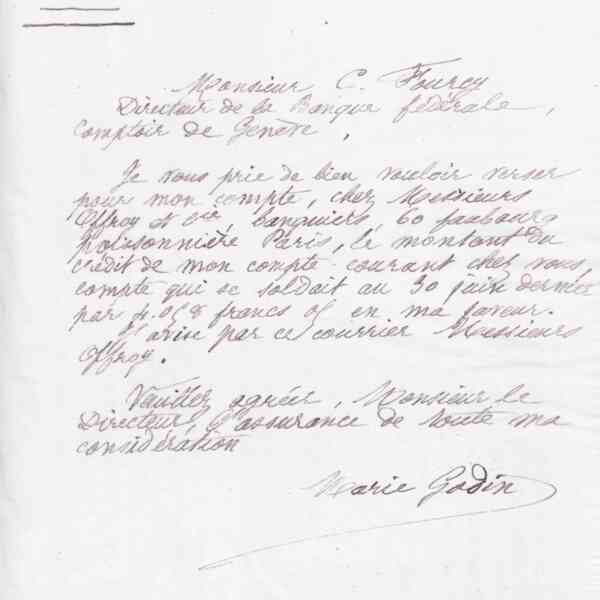 Monsieur C. Fourcy
Directeur de la Banque fédérale,
Comptoir de Genève,
Je vous prie de bien vouloir verser
pour mon compte, chez Messieurs
Offroy et Cie, banquiers, 60 faubourg
poissonnière Paris, le montant du
crédit de mon compte-courant chez vous,
compte qui se soldait au 30 juin dernier
par 4.058 francs 05 en ma faveur.
J'avise par ce courrier Messieurs
Offroy.
Veuillez agréer, Monsieur le
Directeur, l'assurance de toute ma
considération
Marie Godin